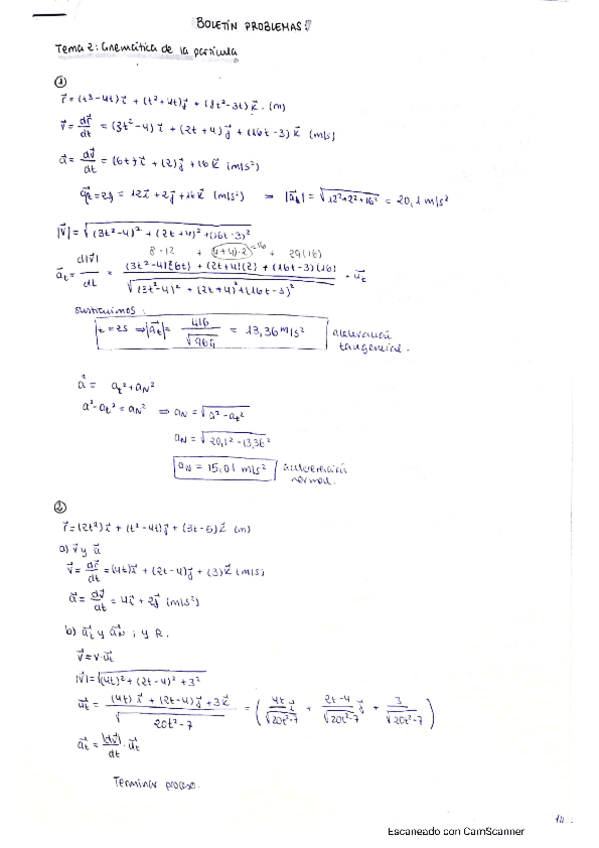 BOLETÍN PROBLEMAS:
Tema 2: Cinemática de la partícula
①
r⃗ = (t³-4t)i⃗ + (t²+4t)j⃗ + (8t²-3t)k⃗. (m)
v⃗ = dr⃗/dt = (3t²-4)i⃗ + (2t+4)j⃗ + (16t-3)k⃗ (m/s)
a⃗ = dv⃗/dt = (6t)i⃗ + (2)j⃗ + 16k⃗ (m/s²)
a⃗t=2s = 12i⃗ + 2j⃗ + 16k⃗ (m/s²) ⇒ |a⃗| = √12²+2²+16² = 20,1 m/s²
|v⃗| = √(3t²-4)² + (2t+4)² + (16t-3)²
8·12 + (4+4)·2 =16 + 29(16)
a⃗t = d|v⃗|/dt = (3t²-4)(6t) + (2t+4)(2) + (16t-3)(16) / √(3t²-4)² + (2t+4)² + (16t-3)² · u⃗t
sustituimos:
t=2s ⇒ |a⃗t| = 416/√964 = 13,36 m/s² aceleración tangencial.
a² = at² + aN²
a²-at² = aN² ⇒ aN = √a²-at²
aN = √20,1²-13,36²
aN = 15,01 m/s² aceleración normal.
②
r⃗ = (2t²)i⃗ + (t²-4t)j⃗ + (3t-5)k⃗ (m)
a) v⃗ y a⃗
v⃗ = dr⃗/dt = (4t)i⃗ + (2t-4)j⃗ + (3)k⃗ (m/s)
a⃗ = dv⃗/dt = 4i⃗ + 2j⃗ (m/s²)
b) a⃗t y a⃗N ; y R.
v⃗ = v·u⃗t
|v⃗| = √(4t)² + (2t-4)² + 3²
u⃗t = (4t)i⃗ + (2t-4)j⃗ + 3k⃗ / √20t²-7 = (4t/√20t²-7 i⃗ + 2t-4/√20t²-7 j⃗ + 3/√20t²-7)
a⃗t = |dv⃗|/dt · u⃗t
Terminar proceso.
Escaneado con CamScanner